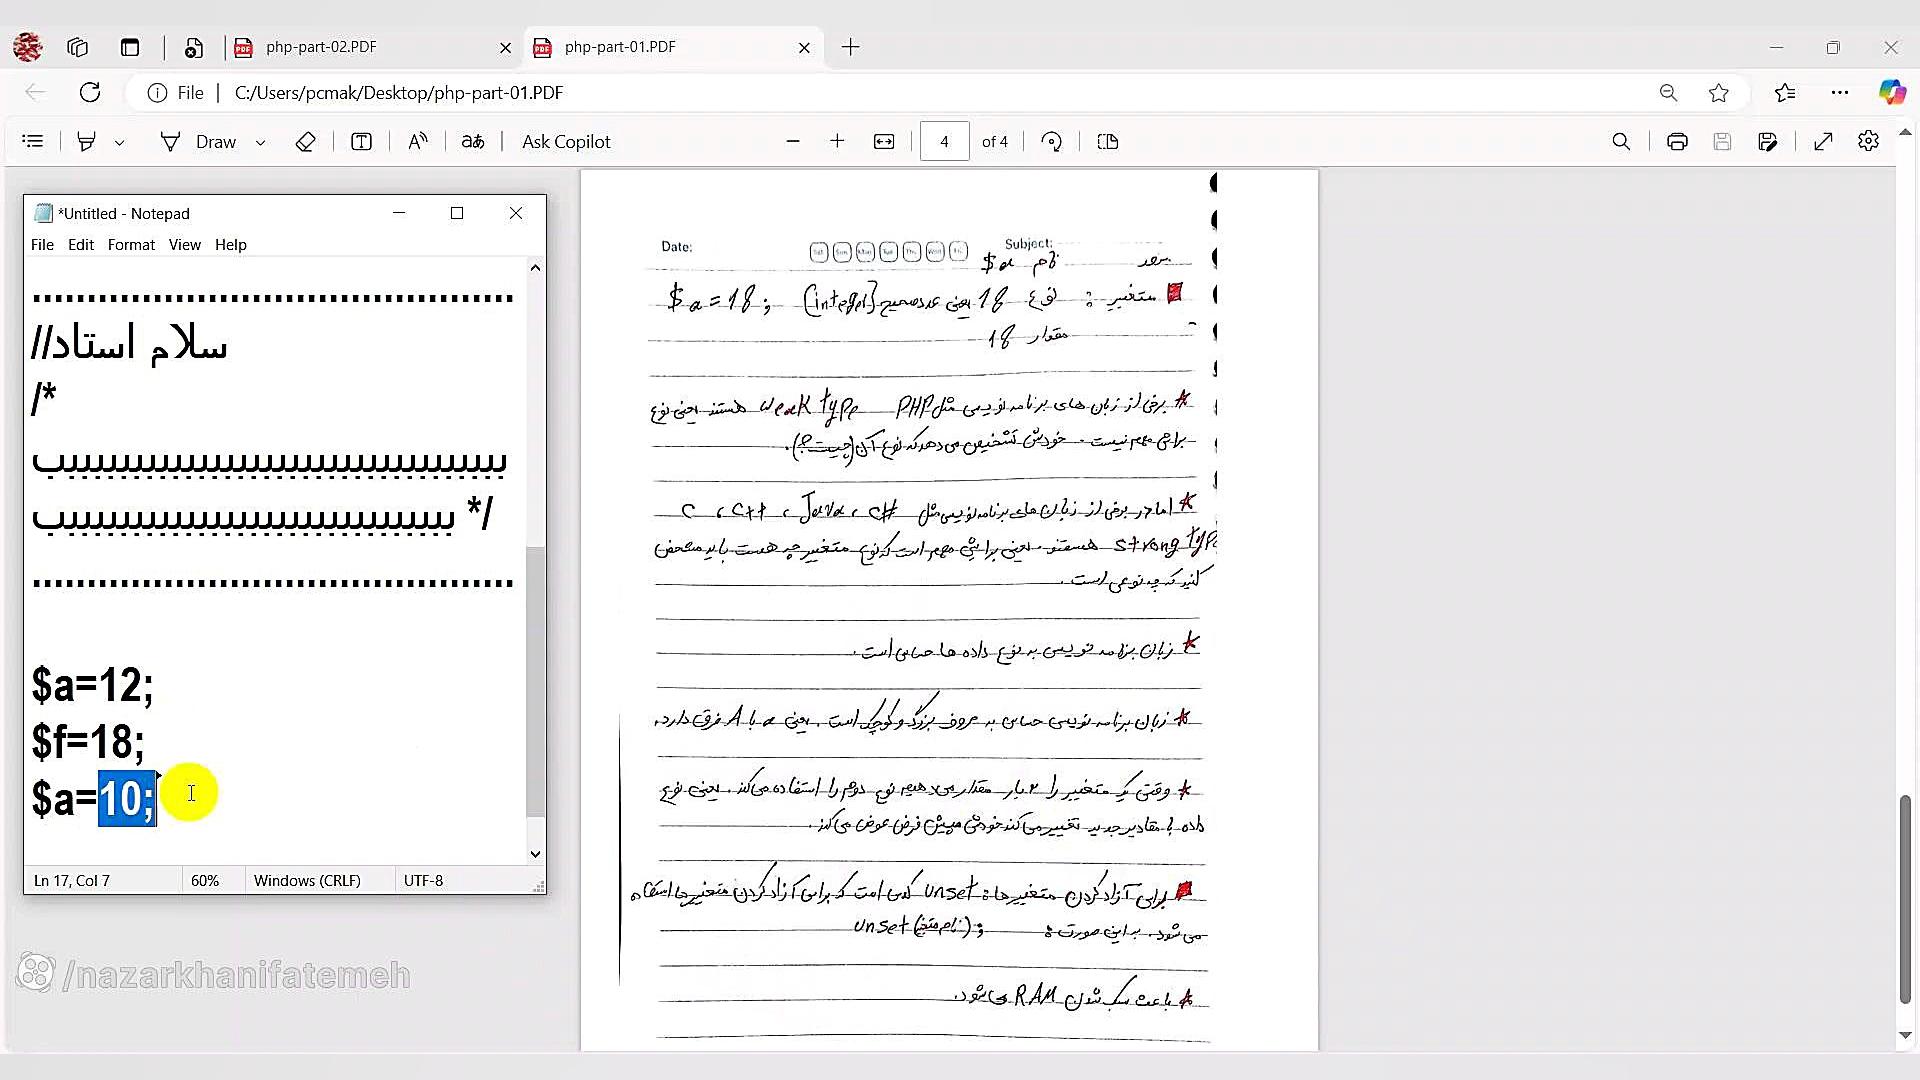 php-part-02.PDF
php-part-01.PDF
File
C:/Users/pcmak/Desktop/php-part-01.PDF
Draw
Ask Copilot
4 of 4
*Untitled - Notepad
File Edit Format View Help
//سلام استاد
/*
*/
$a=12;
$f=18;
$a=10;
Ln 17, Col 7
60%
Windows (CRLF)
UTF-8
/nazarkhanifatemeh
Date:
Sat Sun Mon Tue Thu Wed Fri
Subject:
نام $a
متغییر : نوع 18 یعنی عدد صحیح (integer) $a = 18 ;
مقدار 18
* برخی از زبان های برنامه نویسی مثل PHP weak type هستند یعنی نوع
براش مهم نیست . خودش تشخیص می دهد که نوع آن (چیست؟).
* اما در برخی از زبان های برنامه نویسی مثل C# ، Java ، C++ ، C
strong type هستند . یعنی برایش مهم است که نوع متغییر چه هست باید مشخص
کنید که چه نوعی است .
* زبان برنامه نویسی به نوع داده ها حساس است .
* زبان برنامه نویسی حساس به حروف بزرگ و کوچک است . یعنی a با A فرق دارد.
* وقتی یک متغییر را ۲ بار مقدار می دهیم نوع دوم را استفاده می کند . یعنی نوع
داده با مقادیر جدید تغییر می کند خودش پیش فرض عوض می کند .
برای آزاد کردن متغییر ها : unset کدی است که برای آزاد کردن متغییر ها استفاده
می شود . به این صورت : unset (نام متغیر) ;
* باعث سبک شدن RAM می شود.